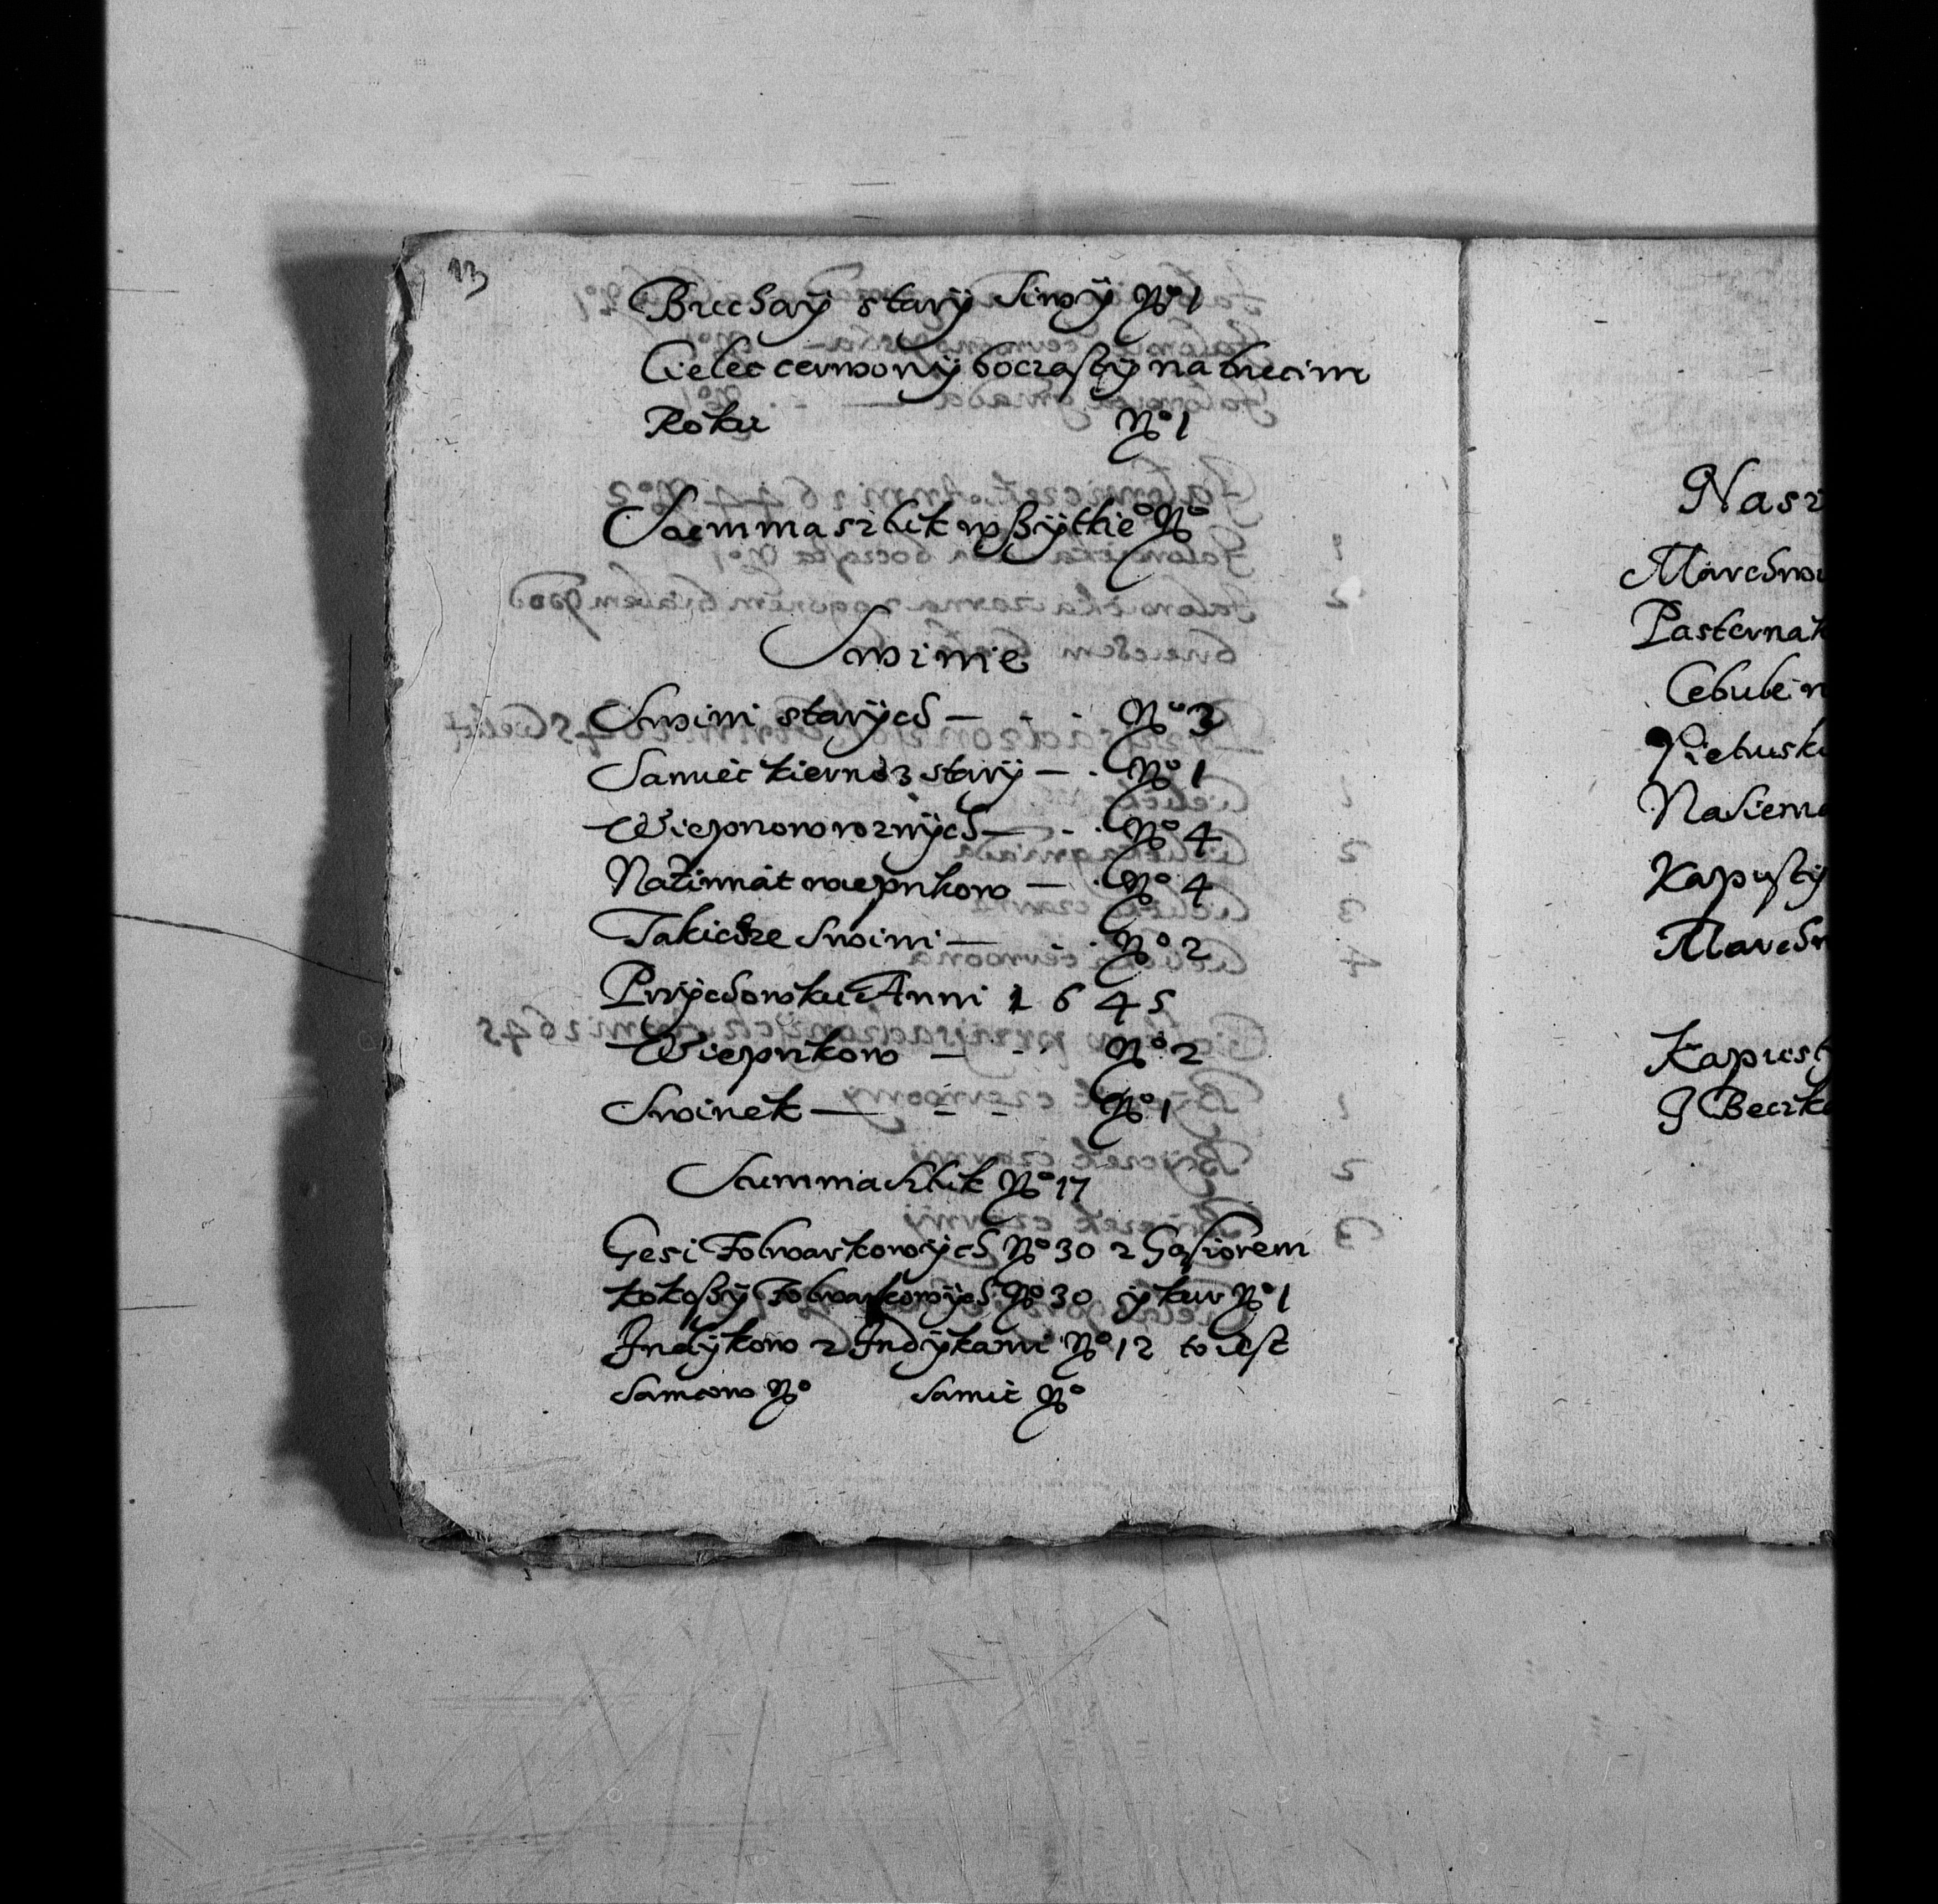 13
Buchaÿ starÿ siwÿ No 1
Cielec cerwonÿ boczastÿ na trecim
Roku No 1
Summa sztuk wszÿtkie° No
Swinie
Swini starÿch — - - No 3
Samiec kiernoz starÿ — . No 1
Wieprzow roznÿch — - . No 4
Nażimiat wieprzkow — . No 4
Takichze swini — - . No 2
Przÿchowku Anni 1645
Wieprzkow — - . No 2
Swinek — - - No 1
Summa sztuk No 17
Gesi Folwarkowÿch No 30 z Gąsiorem
kokoszÿ Folwarkowÿch No 30 ÿ kur No 1
Indÿkow z Indÿkami No 12 to iest
samcow No samic No
Nasi
Marchwi
Pasternak
Cebule
Pietruski
Nasiem
Kapustÿ
March
Kapust
J Beczk